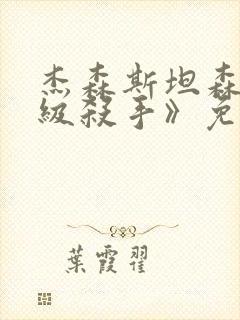 杰森斯坦森
级殺手》免
葉霞翟